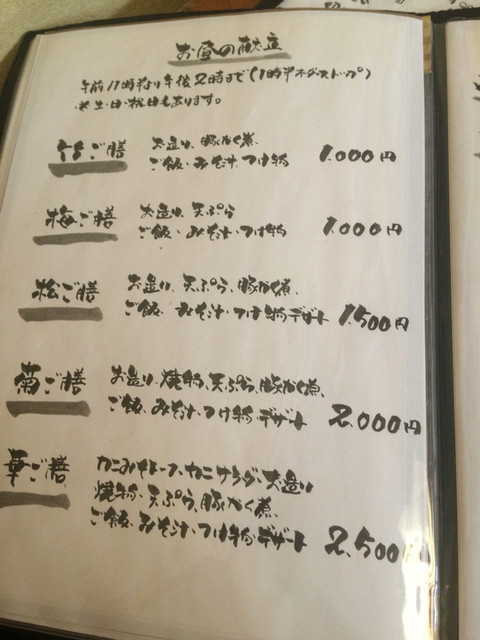 お昼の献立
午前11時半より午後2時まで(1時半オーダーストップ)
土・日・祝日もあります。
竹ご膳 お造り、豚かく煮、
ご飯・みそ汁・つけ物 1.000円
梅ご膳 お造り、天ぷら
ご飯・みそ汁・つけ物 1.000円
松ご膳 お造り、天ぷら、豚かく煮、
ご飯・みそ汁・つけ物・デザート 1.500円
菊ご膳 お造り、焼物、天ぷら、豚かく煮、
ご飯、みそ汁・つけ物・デザート 2.000円
華ご膳 カニみそスープ・カニサラダ・お造り
焼物・天ぷら、豚かく煮、
ご飯・みそ汁・つけ物・デザート 2.500円